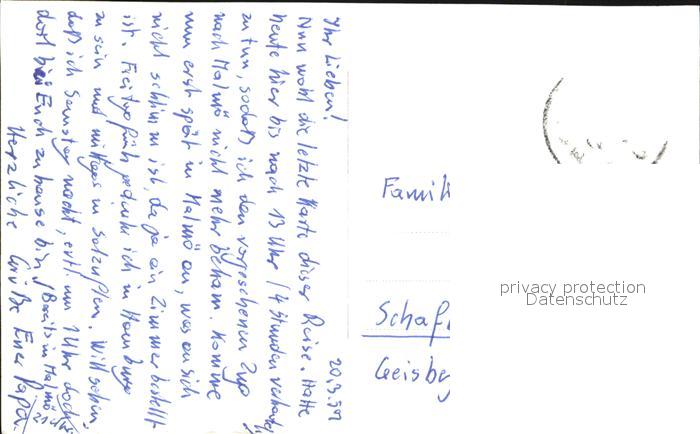 20.3.59
Ihr Lieben!
Nun wohl die letzte Karte dieser Reise. Hatte
heute hier bis nach 13 Uhr / 4 Stunden
zu tun, sodaß ich den vorgesehenen Zug
nach Malmö nicht mehr bekam. Komme
nun erst spät in Malmö an, was an sich
nicht schlimm ist, da ja ein Zimmer bestellt
ist. Freitag früh gedenke ich in Hamburg
zu sein und mittags in Salzuflen. Will sehen,
daß ich Samstag nacht, evtl. um 1 Uhr doch
dort bei Euch zu hause bin. /Bereits in Malmö
Herzliche Grüße Euer Papa.
Famil
Schaf
Geisbe
privacy protection
Datenschutz